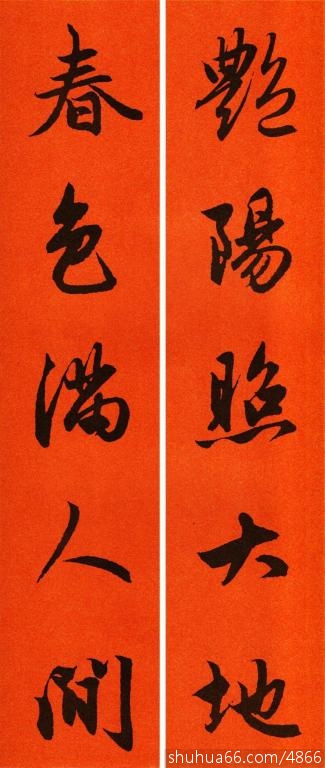 艷陽照大地
春色滿人間
shuhua66.com/4866